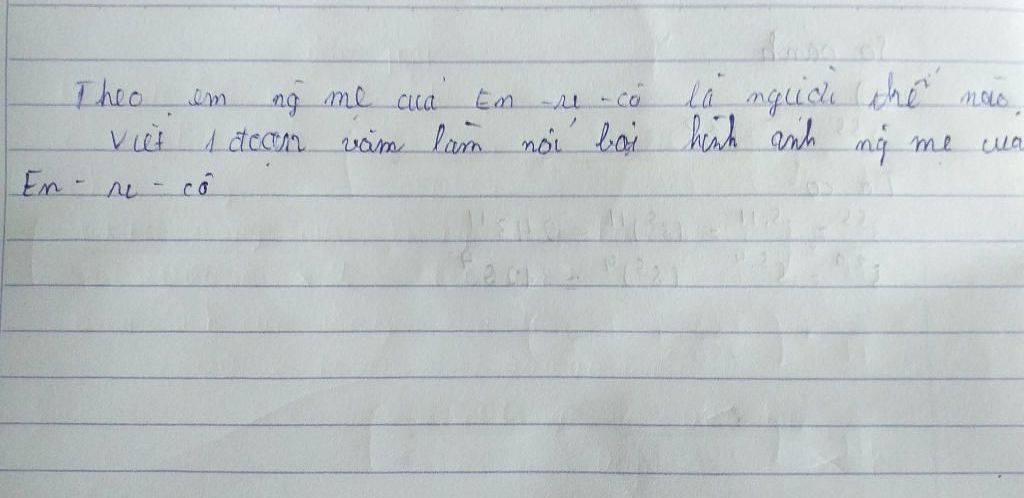 Theo em ng̃ mẹ của En-ri-cô là người thế nào.
Viết 1 đoạn văn làm nổi bật hình ảnh ng̃ mẹ của
En - ri - cô